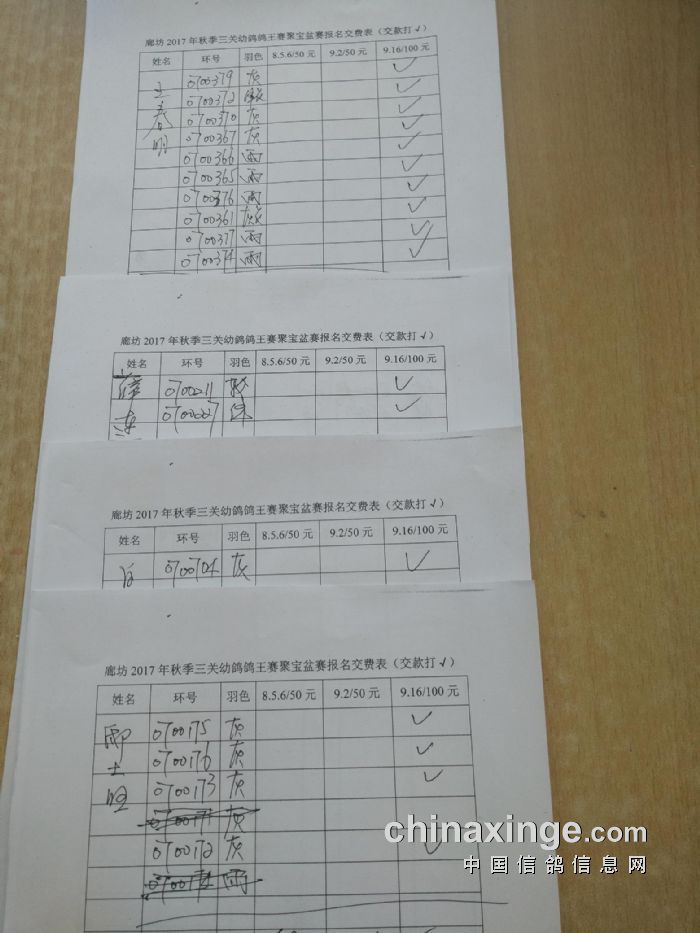 廊坊 2017 年秋季三关幼鸽鸽王赛聚宝盆赛报名交费表（交款打√）
姓名 环号 羽色 8.5.6/50 元 9.2/50 元 9.16/100 元
0700379 灰 ✓
王 0700372 ✓
春 0700370 灰 ✓
明 0700367 灰 ✓
0700366 雨 ✓
0700365 雨 ✓
0700376 雨 ✓
0700361 ✓
0700377 雨 ✓
0700374 雨 ✓
廊坊 2017 年秋季三关幼鸽鸽王赛聚宝盆赛报名交费表（交款打√）
姓名 环号 羽色 8.5.6/50 元 9.2/50 元 9.16/100 元
薛 0700211 ✓
✓
廊坊 2017 年秋季三关幼鸽鸽王赛聚宝盆赛报名交费表（交款打√）
姓名 环号 羽色 8.5.6/50 元 9.2/50 元 9.16/100 元
0700704 灰 ✓
廊坊 2017 年秋季三关幼鸽鸽王赛聚宝盆赛报名交费表（交款打√）
姓名 环号 羽色 8.5.6/50 元 9.2/50 元 9.16/100 元
0700175 灰 ✓
士 0700176 灰 ✓
旺 0700173 灰 ✓
灰
0700172 灰 ✓
雨
chinaxinge.com
中国信鸽信息网